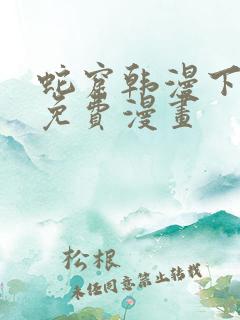 蛇窟韩漫下
免費漫畫
松根
未经同意禁止转载